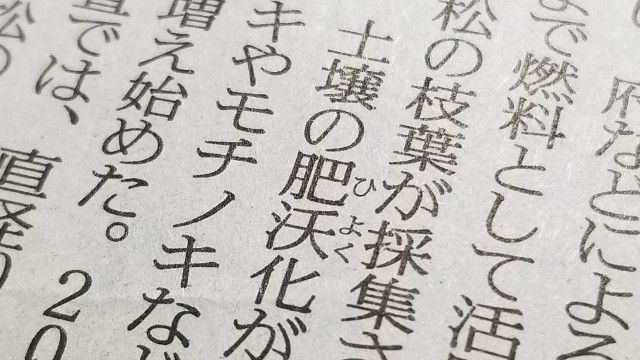 府などによる
で燃料として活
松の枝葉が採集さ
土壌の肥沃化が
ひよく
キやモチノキなど
増え始めた。20
では、直径